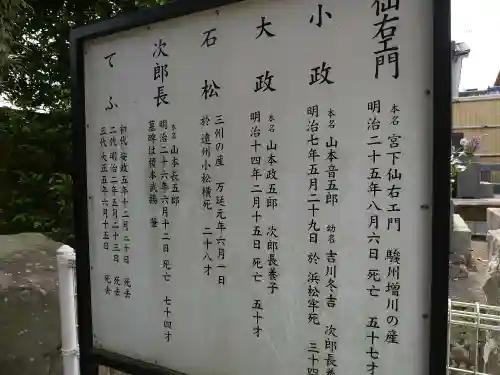 仙右エ門
本名 宮下仙右エ門 駿州増川の産
明治二十五年八月六日 死亡 五十七才
小政
本名 山本音五郎 幼名 吉川冬吉 次郎長養
明治七年五月二十九日 於 浜松牢死 三十四
大政
本名 山本政五郎 次郎長養子
明治十四年二月十五日 死亡 五十才
石松
三州の産 万延元年六月一日
於 遠州小松横死 二十八才
次郎長
本名 山本長五郎
明治二十六年六月十二日 死亡 七十四才
墓碑は榎本武揚 筆
てふ
初代 安政五年十二月三十日 死去
二代 明治二年五月二十三日 死去
三代 大正五年六月十五日 死去